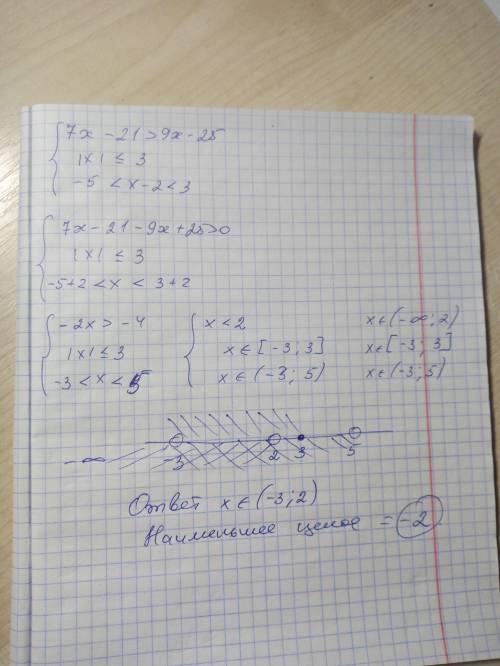 7x - 21 > 9x - 25
|x| ≤ 3
-5 < x - 2 < 3
7x - 21 - 9x + 25 > 0
|x| ≤ 3
-5+2 < x < 3+2
-2x > -4
|x| ≤ 3
-3 < x < 5
x < 2
x ∈ [-3; 3]
x ∈ (-3; 5)
x ∈ (-∞; 2)
x ∈ [-3; 3]
x ∈ (-3; 5)
-∞ -3 2 3 5
Ответ x ∈ (-3; 2)
Наименьшее целое = -2